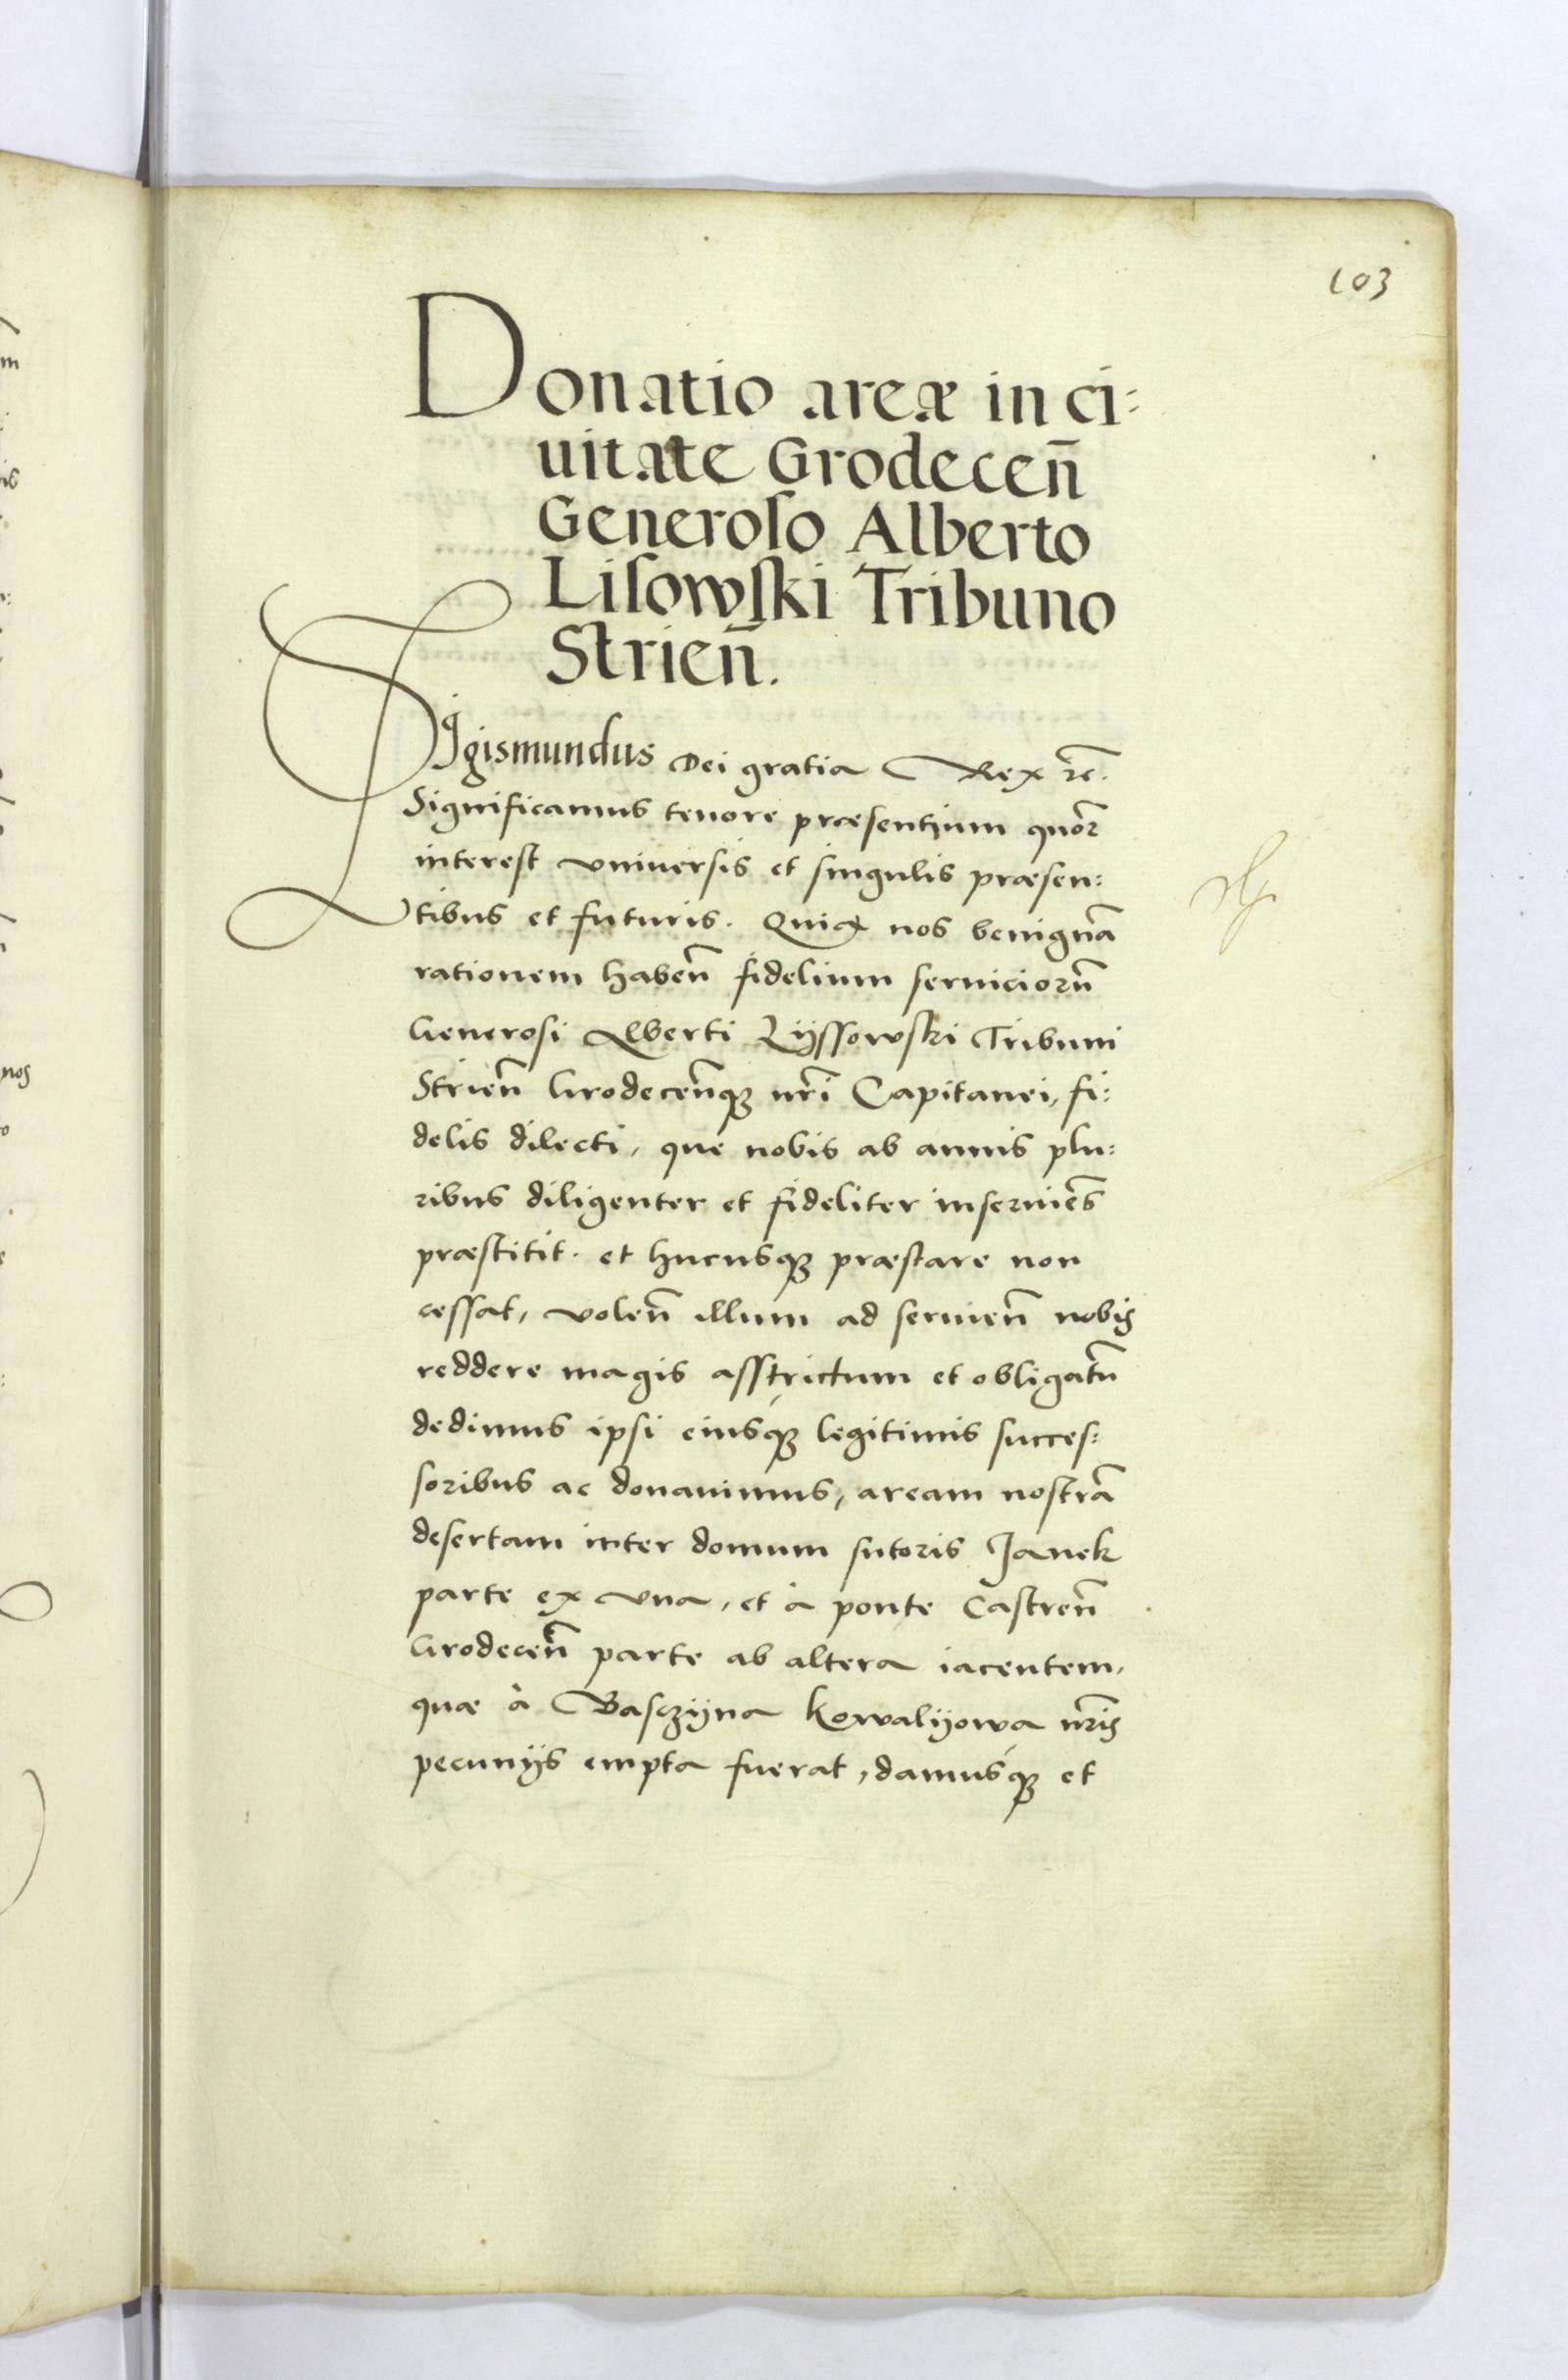 103
Donatio areæ in ci:
uitate Grodeceñ
Generoso Alberto
Lisowski Tribuno
Strieñ.
Sigismundus Dei gratia Rex rc̄.
Significamus tenore præsentium quoꝝ
interest vniuersis et singulis præsen:
tibus et futuris. Quia nos benignā
rationem habeñ fidelium seruiciorū
Generosi Alberti Lÿssowski Tribuni
Strieñ Grodeceñqꝫ nr̄i Capitanei, fi:
delis dilecti, que nobis ab annis plu:
ribus diligenter et fideliter inseruiēs
præstitit. et hucusqꝫ præstare non
cessat, voleñ illum ad seruieñ nobis
reddere magis asstrictum et obligatū
dedimus ipsi eiusqꝫ legitimis succes:
soribus ac donauimus, aream nostrā
desertam inter domum sutoris Janek
parte ex vna, et à ponte Castreñ
Grodeceñ parte ab altera iacentem,
quæ à Basczÿna Kowalÿowa nr̄is
pecunÿs empta fuerat, damusqꝫ et